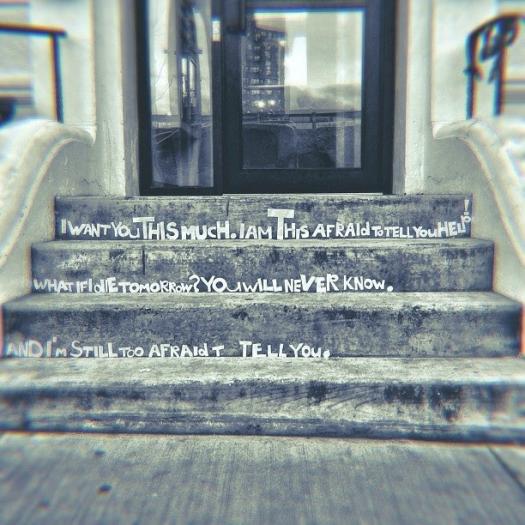 I WANT YOU THIS MUCH. I AM THIS AFRAId To TELL YOU HELlo!
WHAT IF I dIE TOMORROW? YOU WILL NEVER KNOW.
ANd I'M STILL TOO AFRAId T TELL YOU.